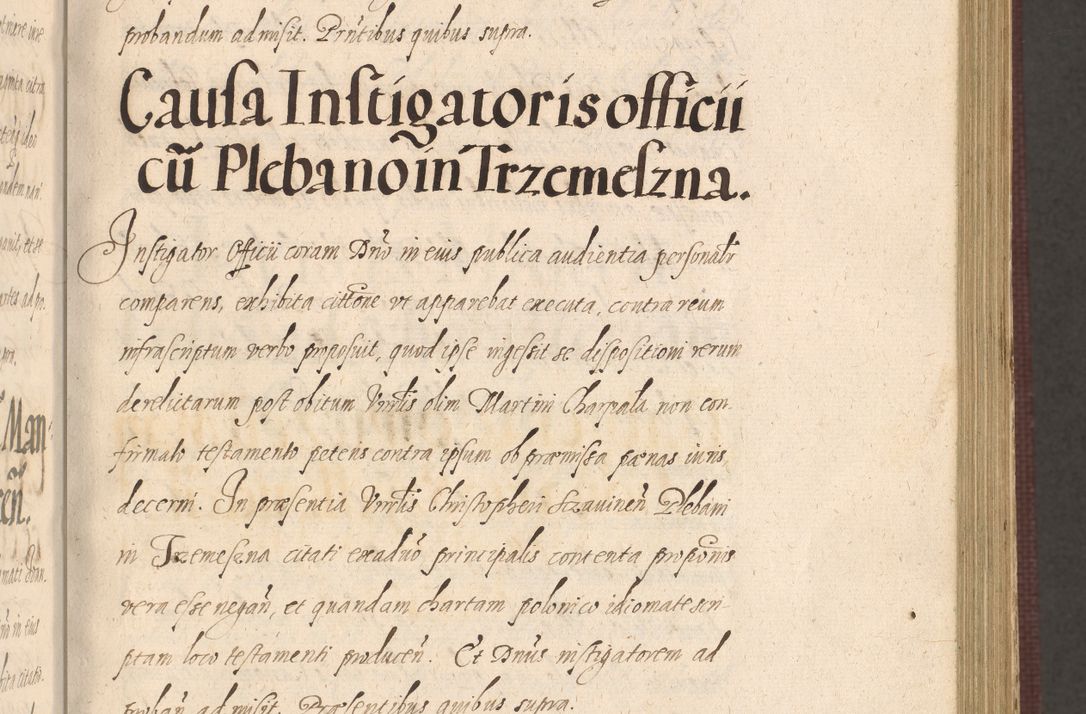 probandum admisit. Prñtibus quibus supra.
Causa Instigatoris officii
cũ Plebano in Trzemeszna.
Instigator Officii coram Dnõ in eius publica audientia personalr
comparens, exhibita cittõne vt apparebat executa, contra reum
infrascriptum verbo proposuit, quod ipse ingessit se dispositioni rerum
derelictarum post obitum Vnrlis olim Martini Charpala non con-
firmato testamento petens contra ipsum ob præmissa pænas iuris,
decerni. In præsentia Vnrlis Christopheri Sczauineñ Plebani
in Trzemeszna citati ex aduõ principalis contenta propõnis
vera esse negañ, et quandam chartam polonico idiomate scri-
ptam loco testamenti produceñ. Et Dnũs instigatorem ad
probañ admisit. Præsentibus quibus supra.